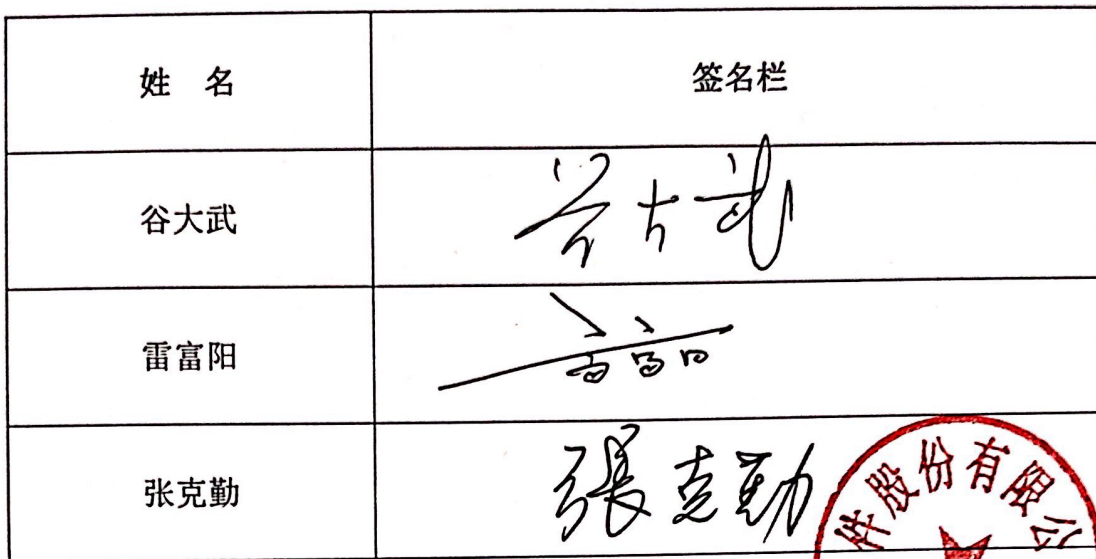 姓 名 签名栏
谷大武 谷大武
雷富阳
张克勤 張克勤
件股份有限公